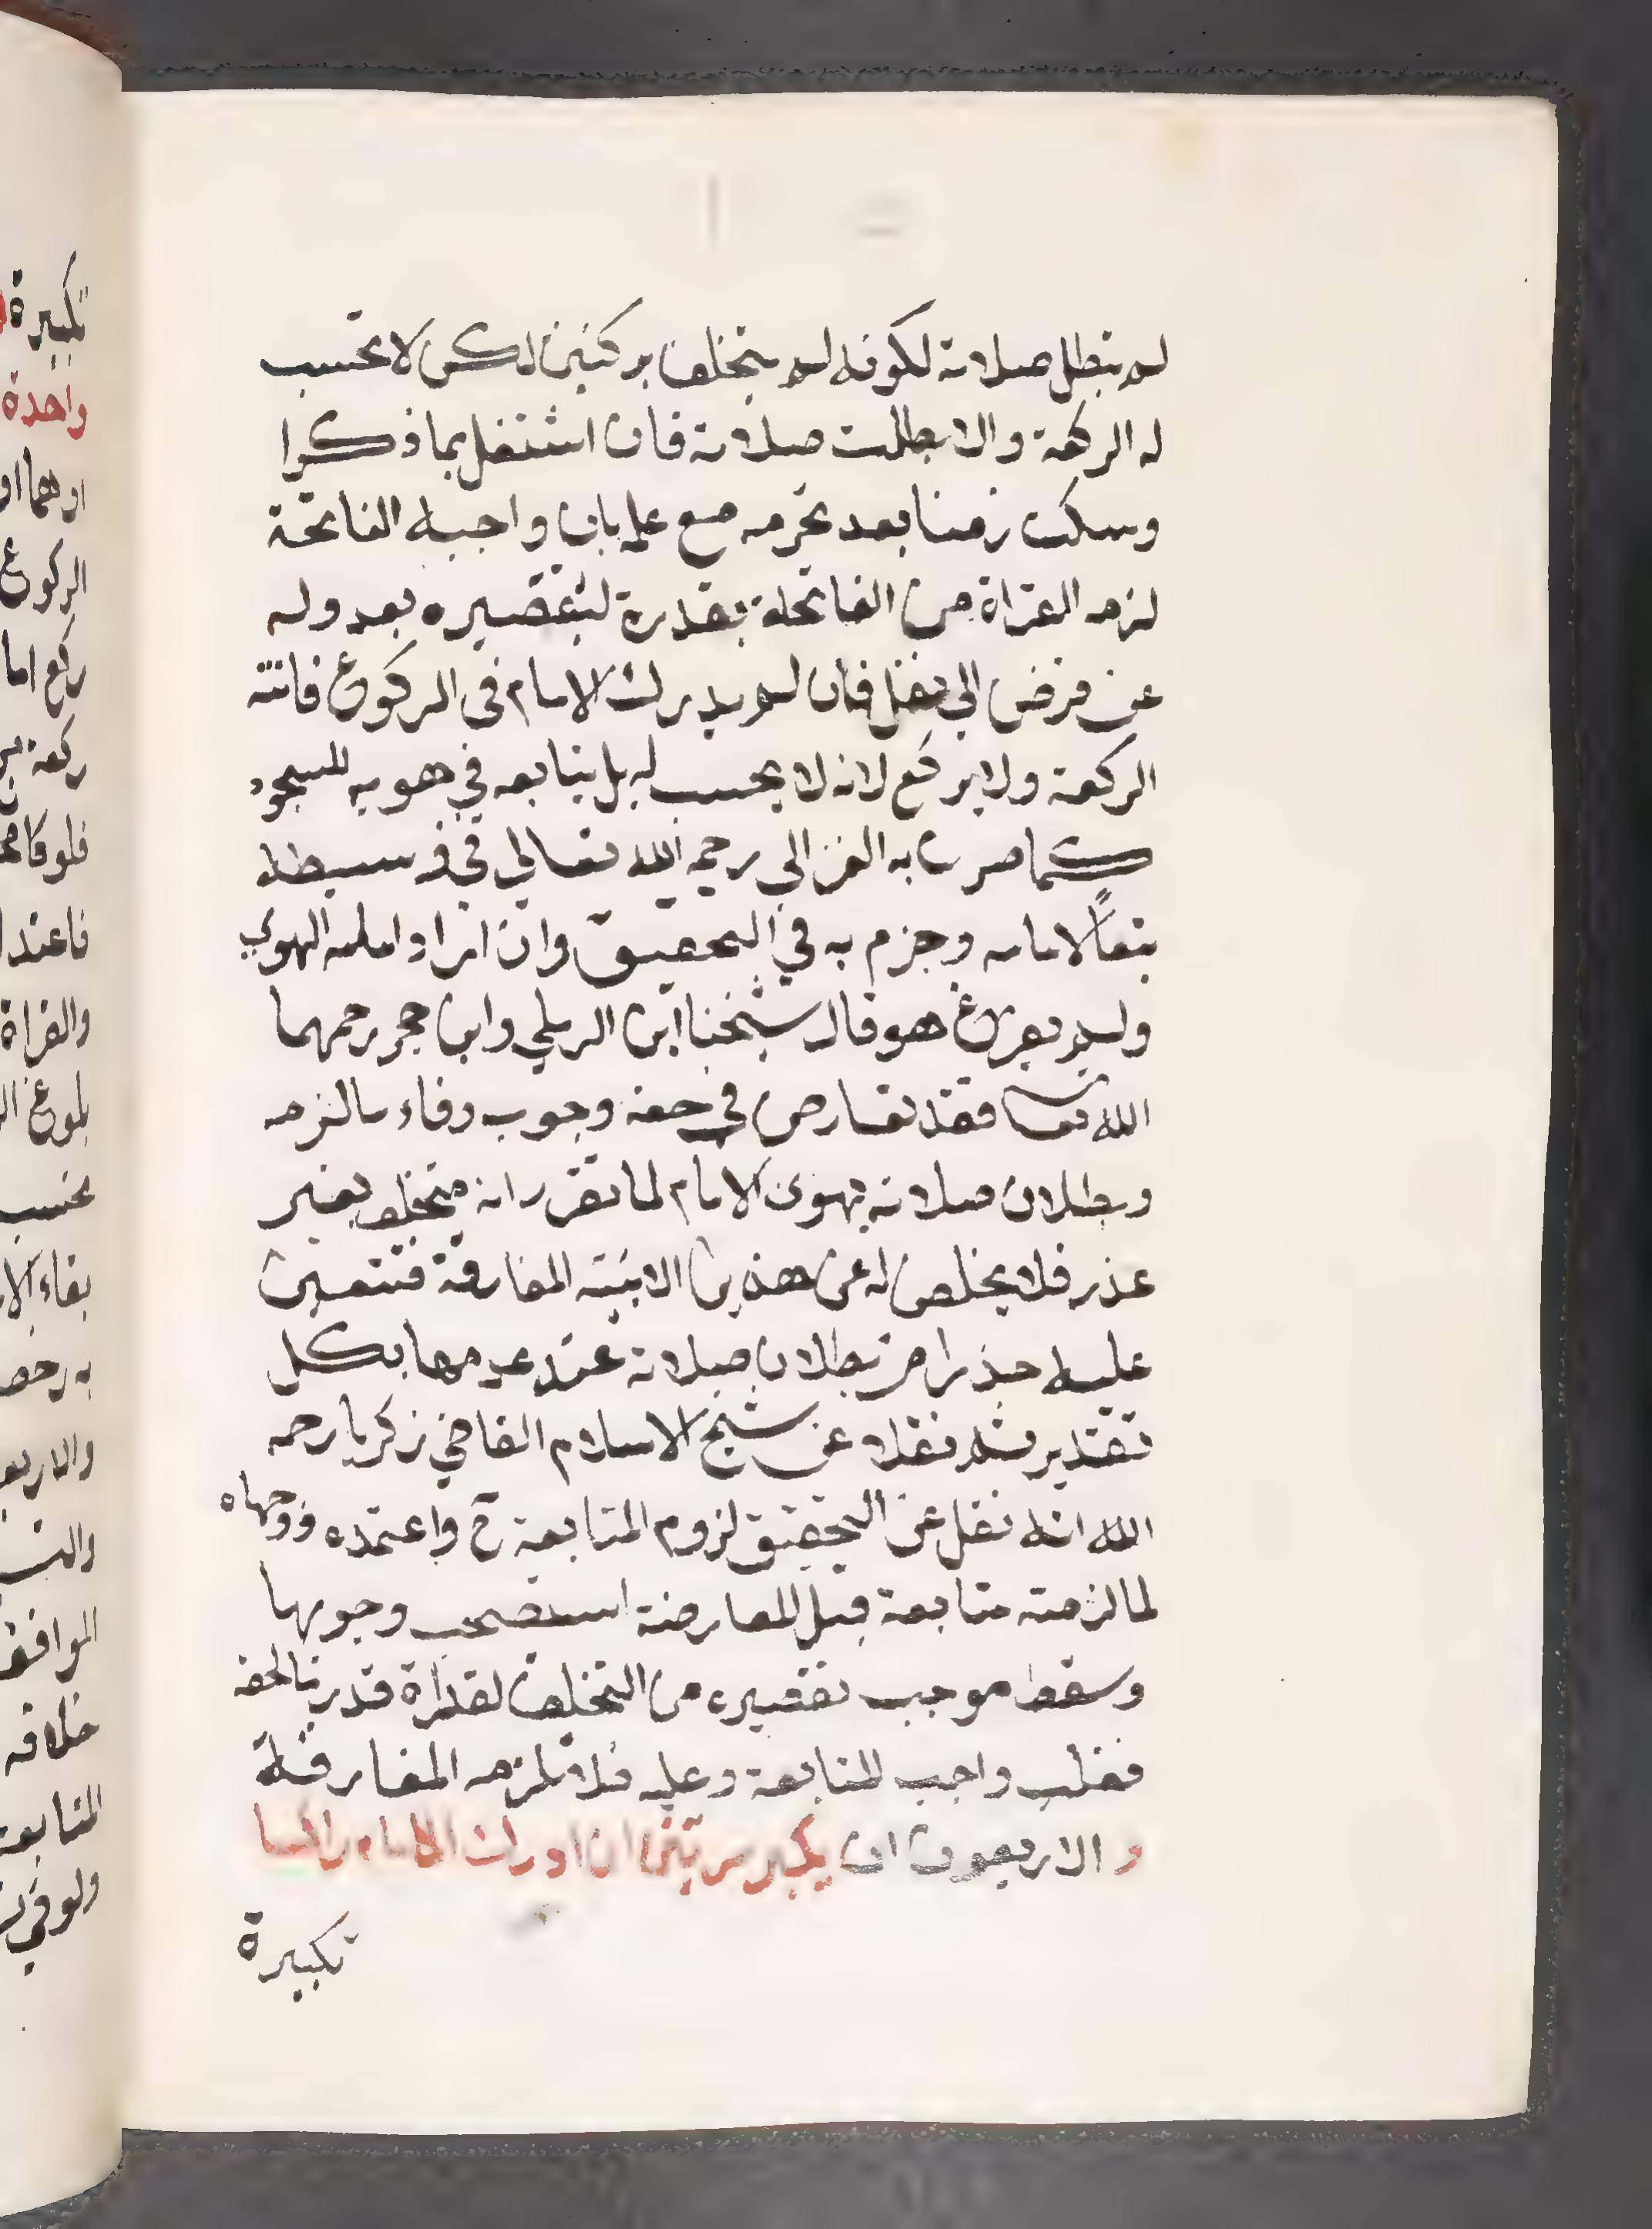 لم تبطل صلاته لكونه لم يتخلف بركنين لكن لا تحسب
له الركعة والا بطلت صلاته فان اشتغل بما ذكرا
وسكت زمنا بعد تحرمه مع علمه بان واجبه الفاتحة
لزمه القراة من الفاتحة بقدرة لتقصيره بعدوله
عن فرض الي نفل فان لم يدرك الامام في الركوع فاتته
الركعة ولا يركع لانه لا يحسب له بل يتابعه في هويه للسجود
كما صرح به الغزالي رحمه الله تعالي في وسيطه
تبعاً لامامه وجزم به في التحقيق وان اراد امامه الهوي
ولم يفرغ هو قال شيخنا ابن الرملي وابن حجر رحمهما
الله تعا فقد تعارض في حقه وجوب وفاء مالزمه
وبطلان صلاته بهوي الامام لما تقرر انه متخلف بغير
عذر فلا يخلص له عن هذين الا نية المفارقة فتتعين
عليه حذرا من بطلان صلاته عند عدمها بكل
تقدير ثم نقلا عن شيخ الاسلام القاضي زكريا رحمه
الله انه نقل عن التحقيق لزوم المتابعة ح واعتمده ووجهاه
لما لزمته متابعة قبل المعارضة استصحب وجوبها
وسقط موجب تقصيره من التخلف لقراة قدر ما لحقه
فغلب واجب المتابعة وعليه فلا تلزمه المفارقة
و الاربعون ان يكبر مرتين ان ادرك الامام راكعا
تكبيرة
تكبيرة
واحدة
الركوع
ركع اما
فاعتد
والقراة
بلوغ
تحسب
الموافق
خلافه
المتابعة
ولو في